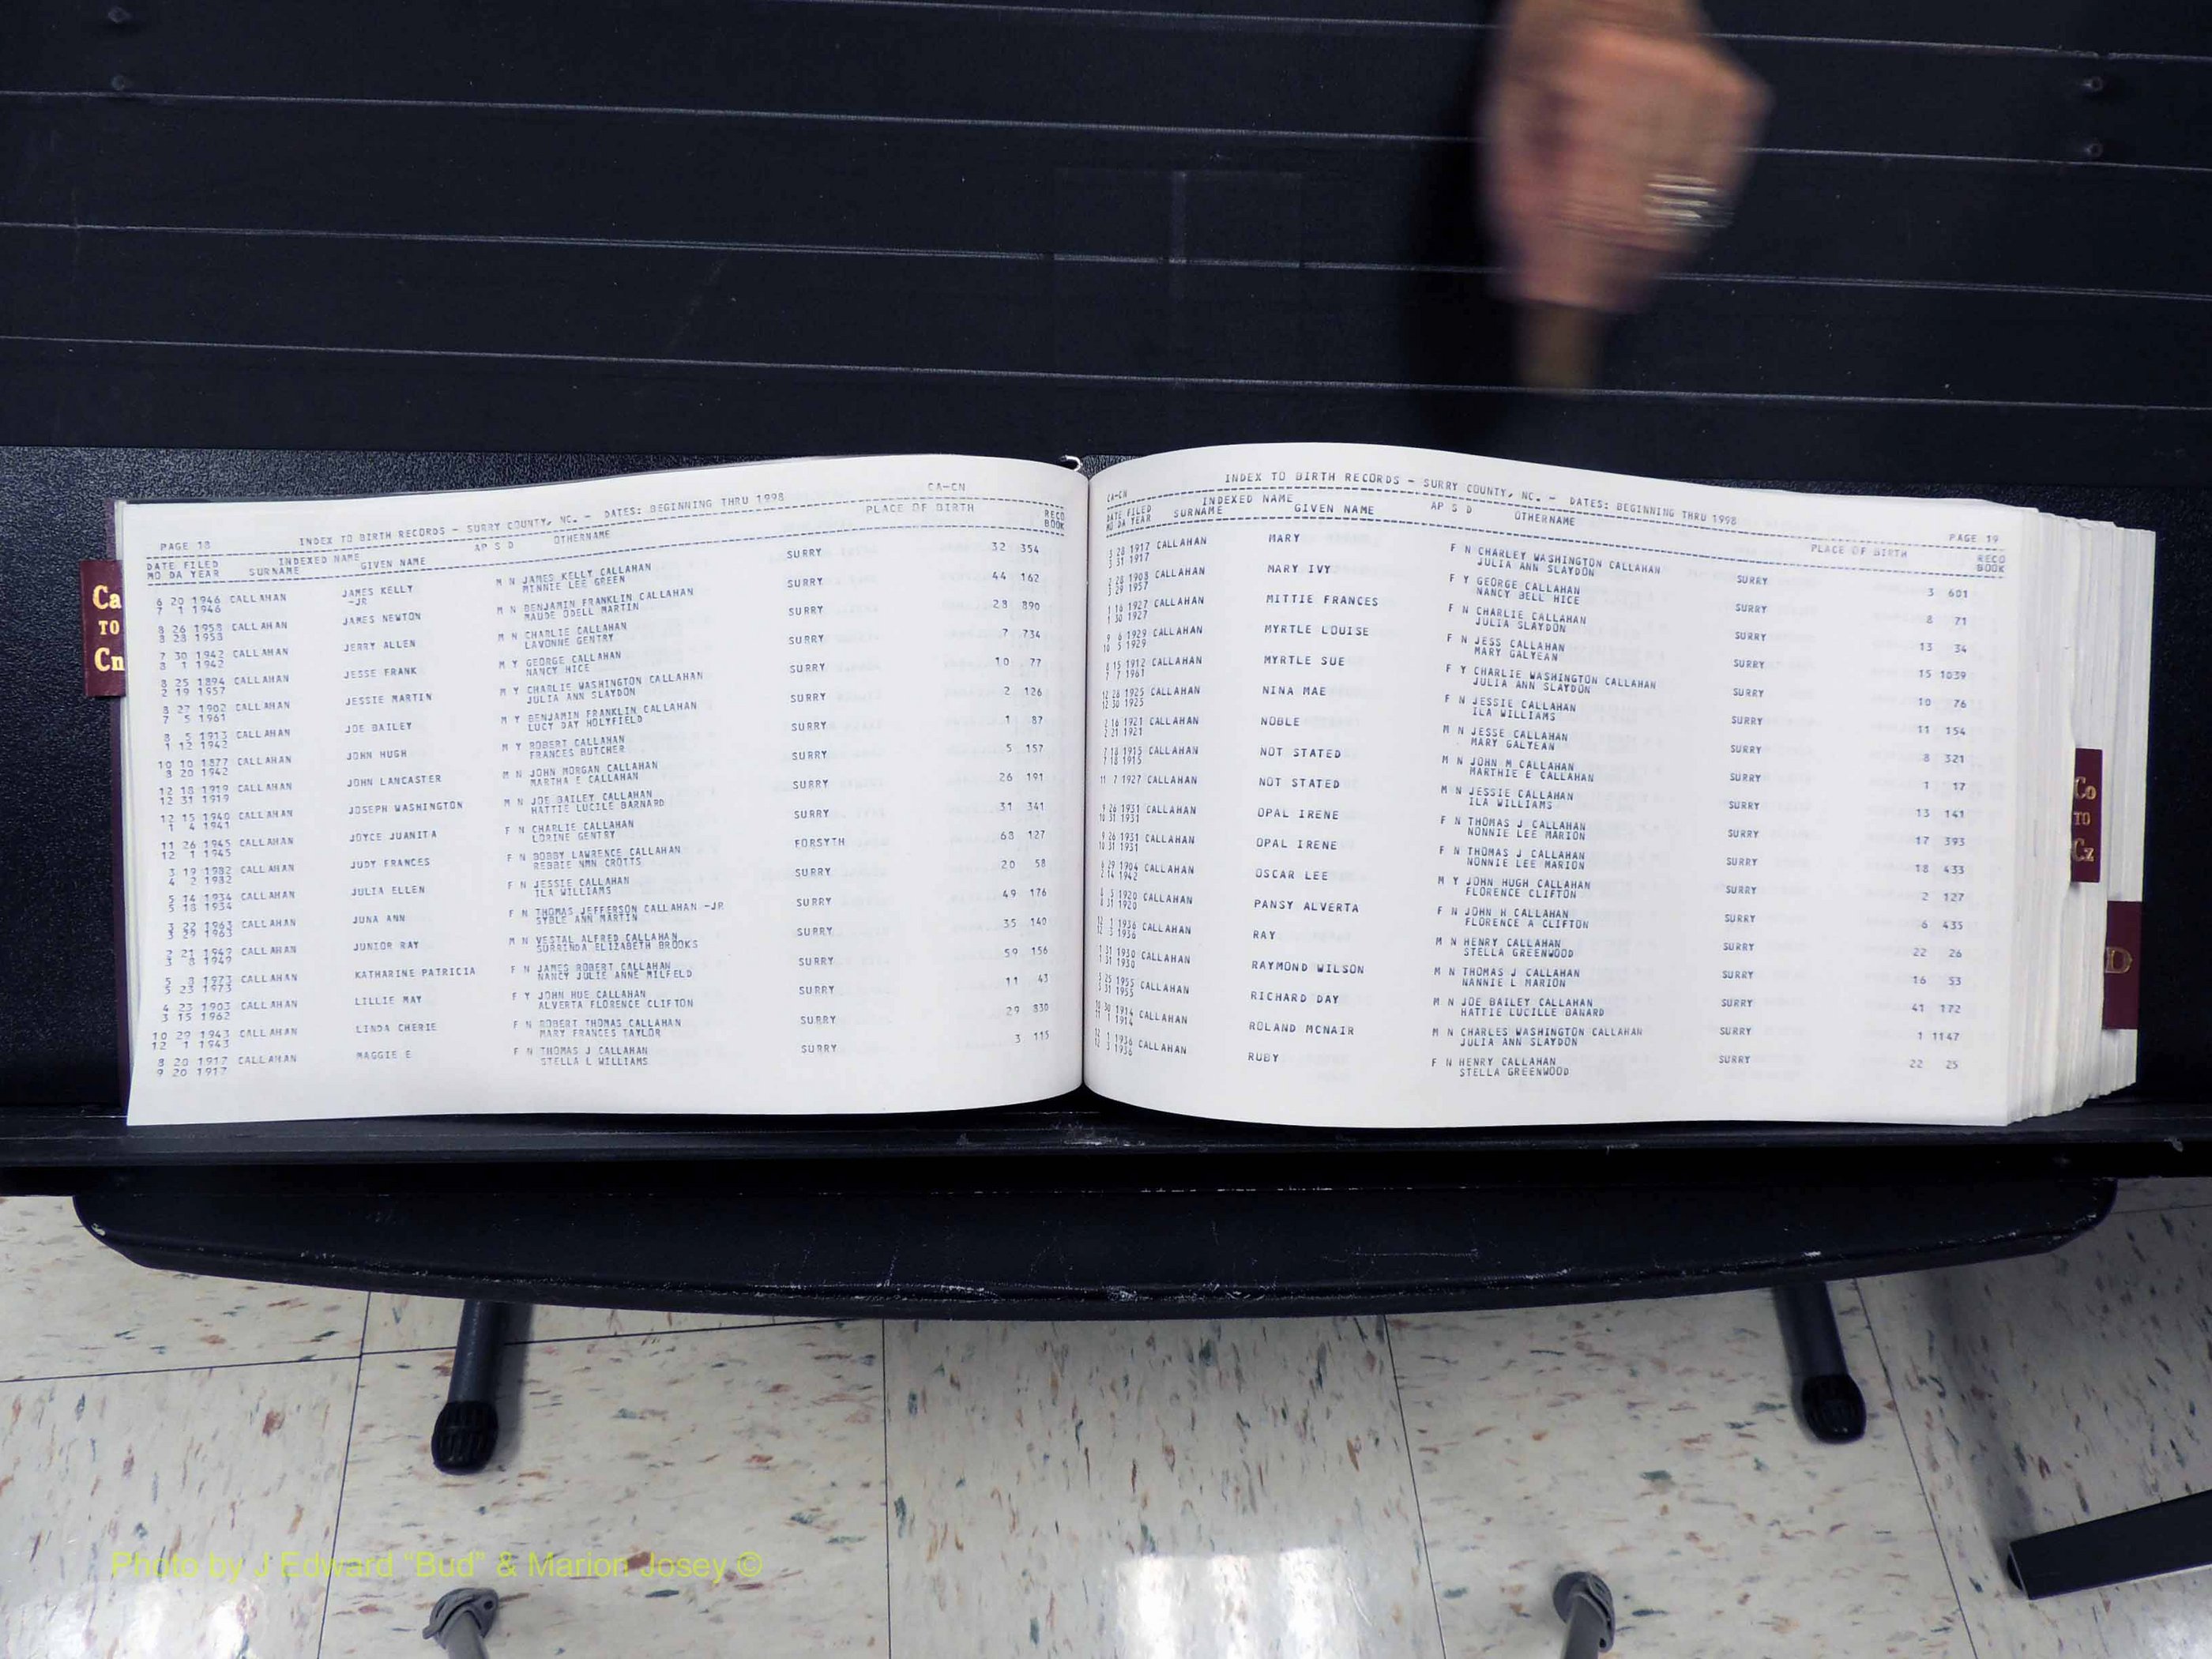 Ca
TO
Cn
PAGE 18 INDEX TO BIRTH RECORDS - SURRY COUNTY, NC. - DATES: BEGINNING THRU 1998 CA-CN
DATE FILED INDEXED NAME AP S D OTHERNAME PLACE OF BIRTH RECO
MO DA YEAR SURNAME GIVEN NAME BOOK
6 20 1946 CALLAHAN JAMES KELLY M N JAMES KELLY CALLAHAN SURRY 32 354
7 1 1946 -JR MINNIE LEE GREEN
8 26 1958 CALLAHAN JAMES NEWTON M N BENJAMIN FRANKLIN CALLAHAN SURRY 44 162
8 28 1958 MAUDE ODELL MARTIN
7 30 1942 CALLAHAN JERRY ALLEN M N CHARLIE CALLAHAN SURRY 28 890
8 1 1942 LAVONNE GENTRY
8 25 1894 CALLAHAN JESSE FRANK M Y GEORGE CALLAHAN SURRY 7 734
2 19 1957 NANCY HICE
8 27 1902 CALLAHAN JESSIE MARTIN M Y CHARLIE WASHINGTON CALLAHAN SURRY 10 77
7 5 1961 JULIA ANN SLAYDON
8 5 1913 CALLAHAN JOE BAILEY M Y BENJAMIN FRANKLIN CALLAHAN SURRY 2 126
1 12 1942 LUCY DAY HOLYFIELD
10 10 1877 CALLAHAN JOHN HUGH M Y ROBERT CALLAHAN SURRY 1 87
8 20 1942 FRANCES BUTCHER
12 18 1919 CALLAHAN JOHN LANCASTER M N JOHN MORGAN CALLAHAN SURRY 5 157
12 31 1919 MARTHA E CALLAHAN
12 15 1940 CALLAHAN JOSEPH WASHINGTON M N JOE BAILEY CALLAHAN SURRY 26 191
1 4 1941 HATTIE LUCILE BARNARD
11 26 1945 CALLAHAN JOYCE JUANITA F N CHARLIE CALLAHAN SURRY 31 341
12 1 1945 LORINE GENTRY
3 19 1982 CALLAHAN JUDY FRANCES F N BOBBY LAWRENCE CALLAHAN FORSYTH 68 127
4 2 1982 REBBIE NMN CROTTS
5 14 1934 CALLAHAN JULIA ELLEN F N JESSIE CALLAHAN SURRY 20 58
5 18 1934 ILA WILLIAMS
3 22 1963 CALLAHAN JUNA ANN F N THOMAS JEFFERSON CALLAHAN -JR SURRY 49 176
3 29 1963 SYBLE ANN MARTIN
2 21 1949 CALLAHAN JUNIOR RAY M N VESTAL ALFRED CALLAHAN SURRY 35 140
3 8 1949 SURRINDA ELIZABETH BROOKS
5 8 1973 CALLAHAN KATHARINE PATRICIA F N JAMES ROBERT CALLAHAN SURRY 59 156
5 23 1973 NANCY JULIE ANNE MILFELD
4 23 1903 CALLAHAN LILLIE MAY F Y JOHN HUE CALLAHAN SURRY 11 43
3 15 1962 ALVERTA FLORENCE CLIFTON
10 29 1943 CALLAHAN LINDA CHERIE F N ROBERT THOMAS CALLAHAN SURRY 29 830
12 1 1943 MARY FRANCES TAYLOR
8 20 1917 CALLAHAN MAGGIE E F N THOMAS J CALLAHAN SURRY 3 115
9 20 1917 STELLA L WILLIAMS
CA-CN INDEX TO BIRTH RECORDS - SURRY COUNTY, NC. - DATES: BEGINNING THRU 1998 PAGE 19
DATE FILED INDEXED NAME AP S D OTHERNAME PLACE OF BIRTH RECO
MO DA YEAR SURNAME GIVEN NAME BOOK
3 28 1917 CALLAHAN MARY F N CHARLEY WASHINGTON CALLAHAN SURRY 3 601
3 31 1917 JULIA ANN SLAYDON
2 28 1908 CALLAHAN MARY IVY F Y GEORGE CALLAHAN SURRY 8 71
3 29 1957 NANCY BELL HICE
1 16 1927 CALLAHAN MITTIE FRANCES F N CHARLIE CALLAHAN SURRY 13 34
1 30 1927 JULIA SLAYDON
9 6 1929 CALLAHAN MYRTLE LOUISE F N JESS CALLAHAN SURRY 15 1039
10 5 1929 MARY GALYEAN
8 15 1912 CALLAHAN MYRTLE SUE F Y CHARLIE WASHINGTON CALLAHAN SURRY 10 76
7 7 1961 JULIA ANN SLAYDON
12 26 1925 CALLAHAN NINA MAE F N JESSIE CALLAHAN SURRY 11 154
12 30 1925 ILA WILLIAMS
2 16 1921 CALLAHAN NOBLE M N JESSE CALLAHAN SURRY 8 321
2 21 1921 MARY GALYEAN
7 18 1915 CALLAHAN NOT STATED M N JOHN M CALLAHAN SURRY 1 17
7 18 1915 MARTHIE E CALLAHAN
11 7 1927 CALLAHAN NOT STATED M N JESSIE CALLAHAN SURRY 13 141
ILA WILLIAMS
9 26 1931 CALLAHAN OPAL IRENE F N THOMAS J CALLAHAN SURRY 17 393
10 31 1931 NONNIE LEE MARION
9 26 1931 CALLAHAN OPAL IRENE F N THOMAS J CALLAHAN SURRY 18 433
10 31 1931 NONNIE LEE MARION
6 29 1904 CALLAHAN OSCAR LEE M Y JOHN HUGH CALLAHAN SURRY 2 127
2 14 1942 FLORENCE CLIFTON
5 1920 CALLAHAN PANSY ALVERTA F N JOHN H CALLAHAN SURRY 6 435
31 1920 FLORENCE A CLIFTON
12 1 1936 CALLAHAN RAY M N HENRY CALLAHAN SURRY 22 26
12 3 1936 STELLA GREENWOOD
1 31 1930 CALLAHAN RAYMOND WILSON M N THOMAS J CALLAHAN SURRY 16 53
1 31 1930 NANNIE L MARION
5 25 1955 CALLAHAN RICHARD DAY M N JOE BAILEY CALLAHAN SURRY 41 172
5 31 1955 HATTIE LUCILLE BANARD
10 30 1914 CALLAHAN ROLAND MCNAIR M N CHARLES WASHINGTON CALLAHAN SURRY 1 1147
11 1 1914 JULIA ANN SLAYDON
12 1 1936 CALLAHAN RUBY F N HENRY CALLAHAN SURRY 22 25
12 3 1936 STELLA GREENWOOD
Co
TO
Cz
D
Photo by J Edward "Bud" & Marion Josey ©